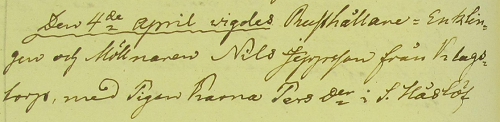 Den 4de april vigdes Rusthållare=Enklin-
gen och Möllnaren Nils Jeppsson från Klags-
torp, med Pigan Karna Pers Der i S. Håslöf